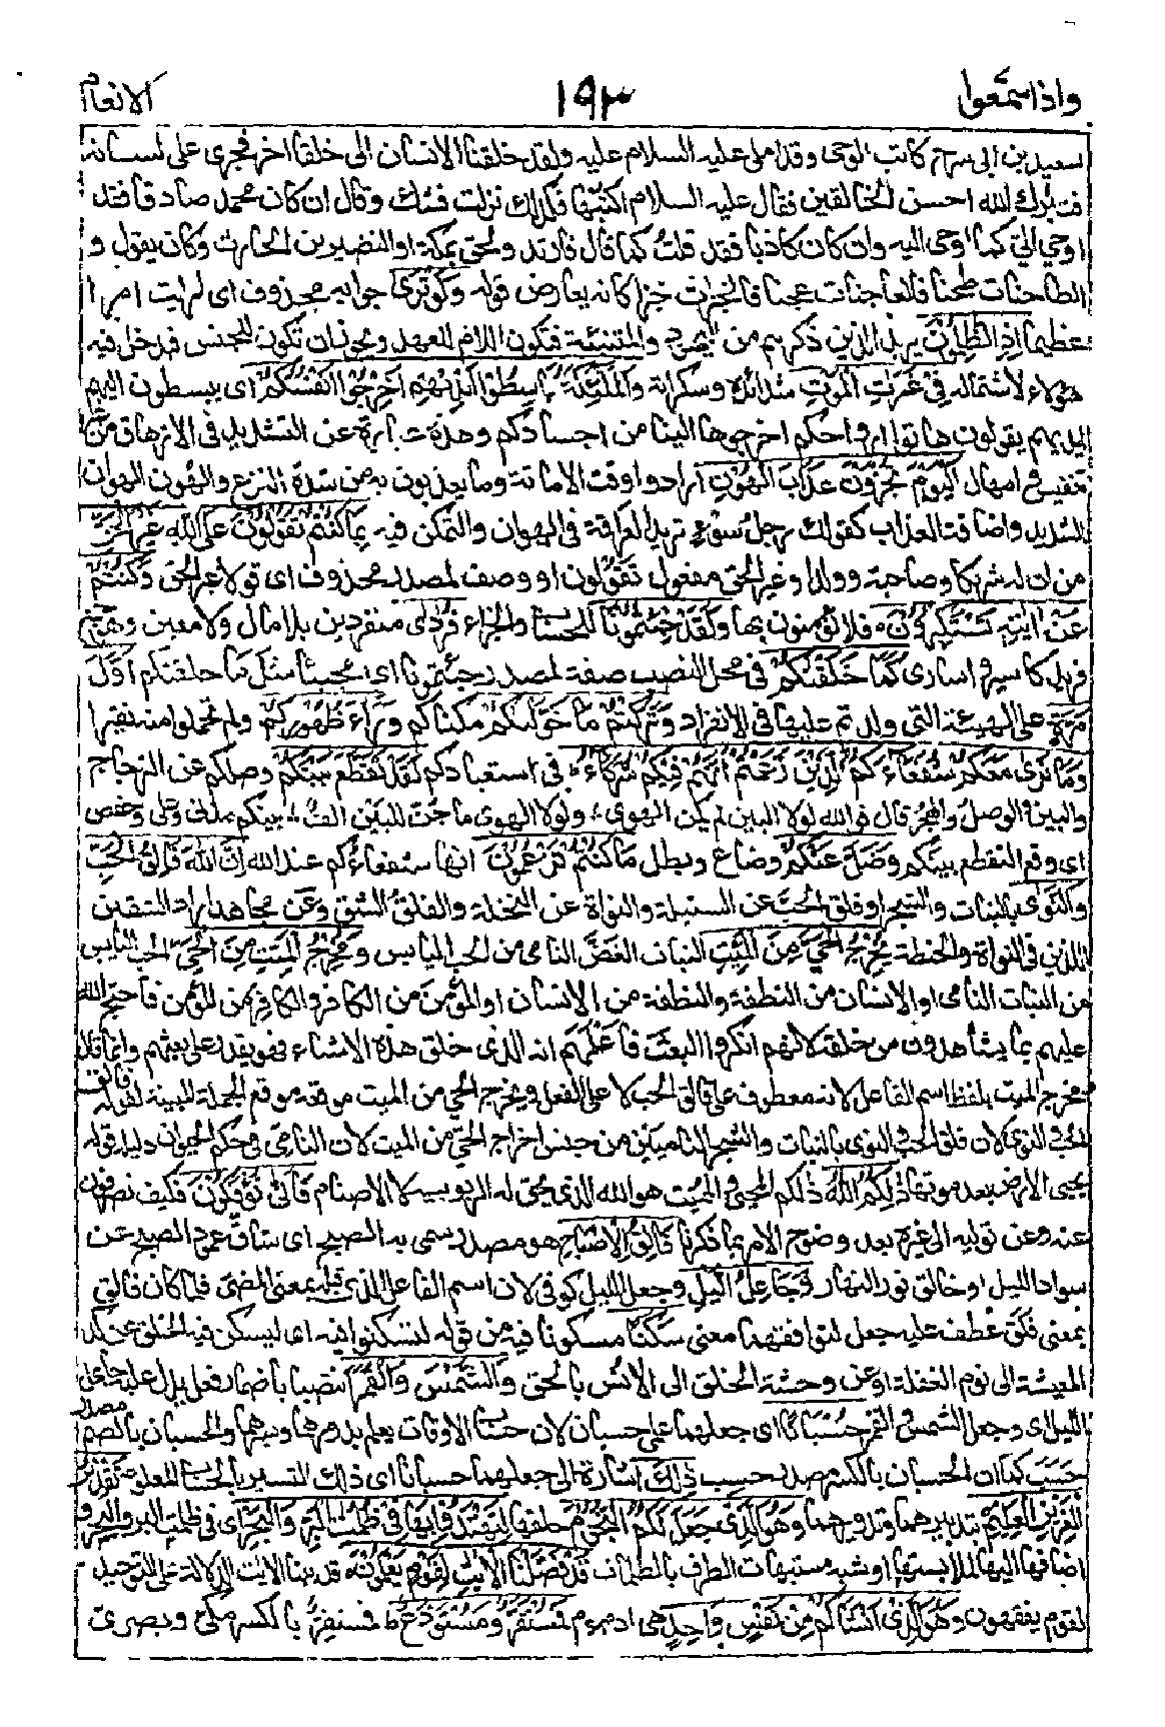 واذا سمعوا ١٩٣ الانعام
سعد بن ابى سرح كاتب الوحى وقد املى عليه السلام عليه ولقد خلقنا الانسان الى خلقا اخر فجرى على لسانه
فتبارك الله احسن الخالقين فقال عليه السلام اكتبها فكذلك نزلت فشك وقال ان كان محمد صادقا فقد
اوحى الىّ كما اوحى اليه وان كان كاذبا فقد قلت كما قال فارتد ولحق بمكة او النضر بن الحارث وكان يقول و
الطاحنات طحنا فالعاجنات عجنا فالخابزات خبزا كانه يعارض قوله وَلَوْ تَرَى جوابه محذوف اى لرايت امرا
عظيما اِذِ الظّٰلِمُوْنَ يريد الذين ذكرهم من اليهود والمتنبئة فتكون اللام للعهد ويجوز ان تكون للجنس فدخل فيه
هؤلاء لاشتماله فِىْ غَمَرٰتِ الْمَوْتِ شدائده وسكراته وَالْمَلٰٓئِكَةُ بَاسِطُوْٓا اَيْدِيْهِمْ اَخْرِجُوْٓا اَنْفُسَكُمْ اى يبسطون اليهم
ايديهم يقولون هاتوا ارواحكم اخرجوها الينا من اجسادكم وهذه عبارة عن التشديد فى الازهاق من غير
تنفيس وامهال اَلْيَوْمَ تُجْزَوْنَ عَذَابَ الْهُوْنِ ارادوا وقت الاماتة وما يعذبون به من شدة النزع والهون الهوان
الشديد واضافة العذاب كقولك رجل سوء تريد العراقة فى الهوان والتمكن فيه بِمَا كُنْتُمْ تَقُوْلُوْنَ عَلَى اللهِ غَيْرَ الْحَقِّ
من ان له شريكا وصاحبة وولدا وغير الحق مفعول تقولون او وصف لمصدر محذوف اى قولا غير الحق وَكُنْتُمْ
عَنْ اٰيٰتِهٖ تَسْتَكْبِرُوْنَ ٥ فلا تؤمنون بها وَلَقَدْ جِئْتُمُوْنَا للحساب والجزاء فُرَادٰى منفردين بلا مال ولا معين وهو جمع
فريد كاسير واسارى كَمَا خَلَقْنٰكُمْ فى محل النصب صفة لمصدر جئتمونا اى مجيئا مثل ما خلقنكم اَوَّلَ
مَرَّةٍ على الهيئة التى ولدتم عليها فى الانفراد وَتَرَكْتُمْ مَّا خَوَّلْنٰكُمْ مكناكم وَرَآءَ ظُهُوْرِكُمْ ولم تحملوا منه نقيرا
وَمَا نَرٰى مَعَكُمْ شُفَعَآءَكُمُ الَّذِيْنَ زَعَمْتُمْ اَنَّهُمْ فِيْكُمْ شُرَكٰٓؤُا فى استعبادكم لَقَدْ تَّقَطَّعَ بَيْنَكُمْ وصلكم عن الزجاج
والبين الوصل والهجر قال فوالله لولا البين لم يكن الهوى ؛ ولولا الهوى ما حن للبين الف ؛ بينكم مدنى وعلى وحفص
اى وقع التقطع بينكم وَضَلَّ عَنْكُمْ وضاع وبطل مَّا كُنْتُمْ تَزْعُمُوْنَ انها شفعاءكم عند الله اِنَّ اللهَ فَالِقُ الْحَبِّ
وَالنَّوٰى بالنبات والشجر او فلق الحب عن السنبلة والنواة عن النخلة والفلق الشق وعن مجاهد اراد الشقين
اللذين فى النواة والحنطة يُخْرِجُ الْحَىَّ مِنَ الْمَيِّتِ النبات الغض النامى من الحب اليابس وَمُخْرِجُ الْمَيِّتِ مِنَ الْحَىِّ الحب اليابس
من النبات النامى او الانسان من النطفة والنطفة من الانسان او المؤمن من الكافر والكافر من المؤمن فاحتج الله
عليهم بما يشاهدون من خلقه لانهم انكروا البعث فاعلمهم انه الذى خلق هذه الاشياء فهو يقدر على بعثهم وانما قال
مخرج الميت بلفظ اسم الفاعل لانه معطوف على فالق الحب لا على الفعل ويخرج الحى من الميت موقعه موقع الجملة المبينة لقوله فالق
الحب والنوى لان فلق الحب والنوى بالنبات والشجر الناميين من جنس اخراج الحى من الميت لان النامى فى حكم الحيوان دليله قوله
يحيى الارض بعد موتها ذٰلِكُمُ اللهُ ذلكم المحيى والمميت هو الله الذى يحق له الربوبية لا الاصنام فَاَنّٰى تُؤْفَكُوْنَ فكيف تصرفون
عنه وعن توليه الى غيره بعد وضوح الامر بما ذكرنا فَالِقُ الْاِصْبَاحِ هو مصدر يسمى به الصبح اى شاق عمود الصبح عن
سواد الليل او خالق نور النهار وَجَاعِلُ الَّيْلِ وجعل الليل كوفى لان اسم الفاعل الذى قبله بمعنى المضى فلما كان فالق
بمعنى فلق عطف عليه جعل لتوافقهما معنى سَكَنًا مسكونا فيه من قوله لتسكنوا فيه اى ليسكن فيه الخلق عن كد
المعيشة الى نوم الغفلة او عن وحشة الخلق الى الانس بالحق وَالشَّمْسَ وَالْقَمَرَ انتصبا باضمار فعل يدل عليه جاعل
الليل اى وجعل الشمس والقمر حُسْبَانًا اى جعلهما على حسبان لان حساب الاوقات يعلم بدورهما وسيرهما والحسبان بالضم مصدر
حسب كما ان الحسبان بالكسر مصدر حسب ذٰلِكَ اشارة الى جعلهما حسبانا اى ذلك التسيير بالحساب المعلوم تَقْدِيْرُ
الْعَزِيْزِ الْعَلِيْمِ بتدبيرهما وتدويرهما وَهُوَ الَّذِىْ جَعَلَ لَكُمُ النُّجُوْمَ خلقها لِتَهْتَدُوْا بِهَا فِىْ ظُلُمٰتِ الْبَرِّ وَالْبَحْرِ اى فى ظلمت الليل بالبر والبحر و
اضافها اليهما لملابستها او شبه مشتبهات الطرق بالظلمات قَدْ فَصَّلْنَا الْاٰيٰتِ لِقَوْمٍ يَّعْلَمُوْنَ ٥ قد بينا الايات الدلالة على التوحيد
لقوم يفقهون وَهُوَ الَّذِىْٓ اَنْشَاَكُمْ مِّنْ نَّفْسٍ وَّاحِدَةٍ هى ادم ع م فَمُسْتَقَرٌّ وَّمُسْتَوْدَعٌ ط فمستقر بالكسر مكى وبصرى